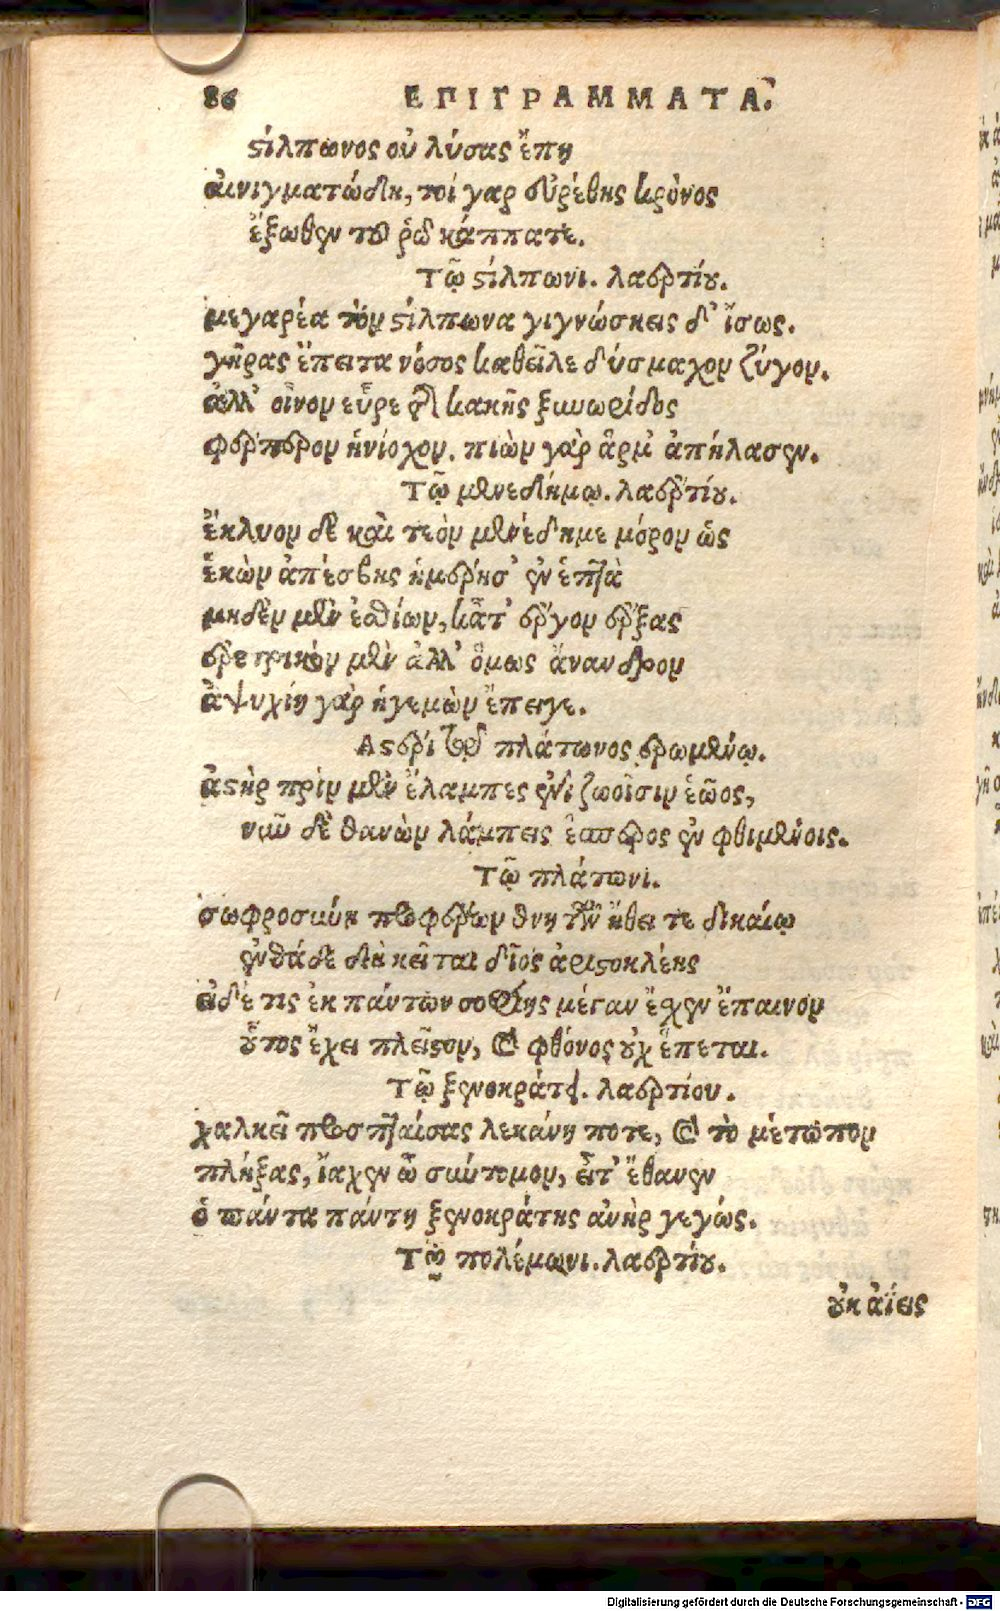 86 ΕΠΙΓΡΑΜΜΑΤΑ.
ϛίλπωνος οὐ λύσας ἔπη
αἰνιγματώδη, τοί γαρ εὑρέθης κρόνος
ἔξωθεν τοῦ ῥῶ κάππατε.
Τῷ ϛίλπωνι. λαερτίου.
μεγαρέα τὸν ϛίλπωνα γιγνώσκεις δ' ἴσως.
γῆρας ἔπειτα νόσος καθεῖλε δύσμαχον ζύγον.
ἀλλ' οἶνον εὗρε τῆς κακῆς ξυνωρίδος
φέρτερον ἡνίοχον. πιὼν γὰρ ἅρμ' ἀπήλασεν.
Τῷ μενεδήμῳ. λαερτίου.
ἔκλυον δὲ καὶ τεὸν μενέδημε μόρον ὡς
ἑκὼν ἀπέσβης ἡμέρησ' ἐν ἑπτὰ
μηδὲν μὲν ἐσθίων, κᾆτ' ἔργον ἔρξας
ἐρετρικὸν μὲν ἀλλ' ὅμως ἄνανδρον
ἀψυχίη γὰρ ἡγεμὼν ἔπειγε.
Αϛέρι τῷ πλάτωνος ἐρωμένῳ.
ἀϛὴρ πρὶν μὲν ἔλαμπες ἐνὶ ζωοῖσιν ἑῶος,
νῦν δὲ θανὼν λάμπεις ἕσπερος ἐν φθιμένοις.
Τῷ πλάτωνι.
σωφροσύνη προφέρων θνητῶν ἤθει τε δικαίῳ
ἐνθάδε δὴ κεῖται δῖος ἀριϛοκλέης
εἰ δέ τις ἐκ πάντων σοφίης μέγαν ἔχεν ἔπαινον
οὗτος ἔχει πλεῖϛον, καὶ φθόνος οὐχ ἕπεται.
Τῷ ξενοκράτει. λαερτίου.
χαλκεῖ προσπταίσας λεκάνη ποτε, καὶ τὸ μέτωπον
πλήξας, ἴαχεν ὦ σύντομον, εἶτ' ἔθανεν
ὁ πάντα πάντη ξενοκράτης ἀνὴρ γεγώς.
Τῷ πολέμωνι. λαερτίου.
οὐκ ἀΐεις
Digitalisierung gefördert durch die Deutsche Forschungsgemeinschaft - DFG